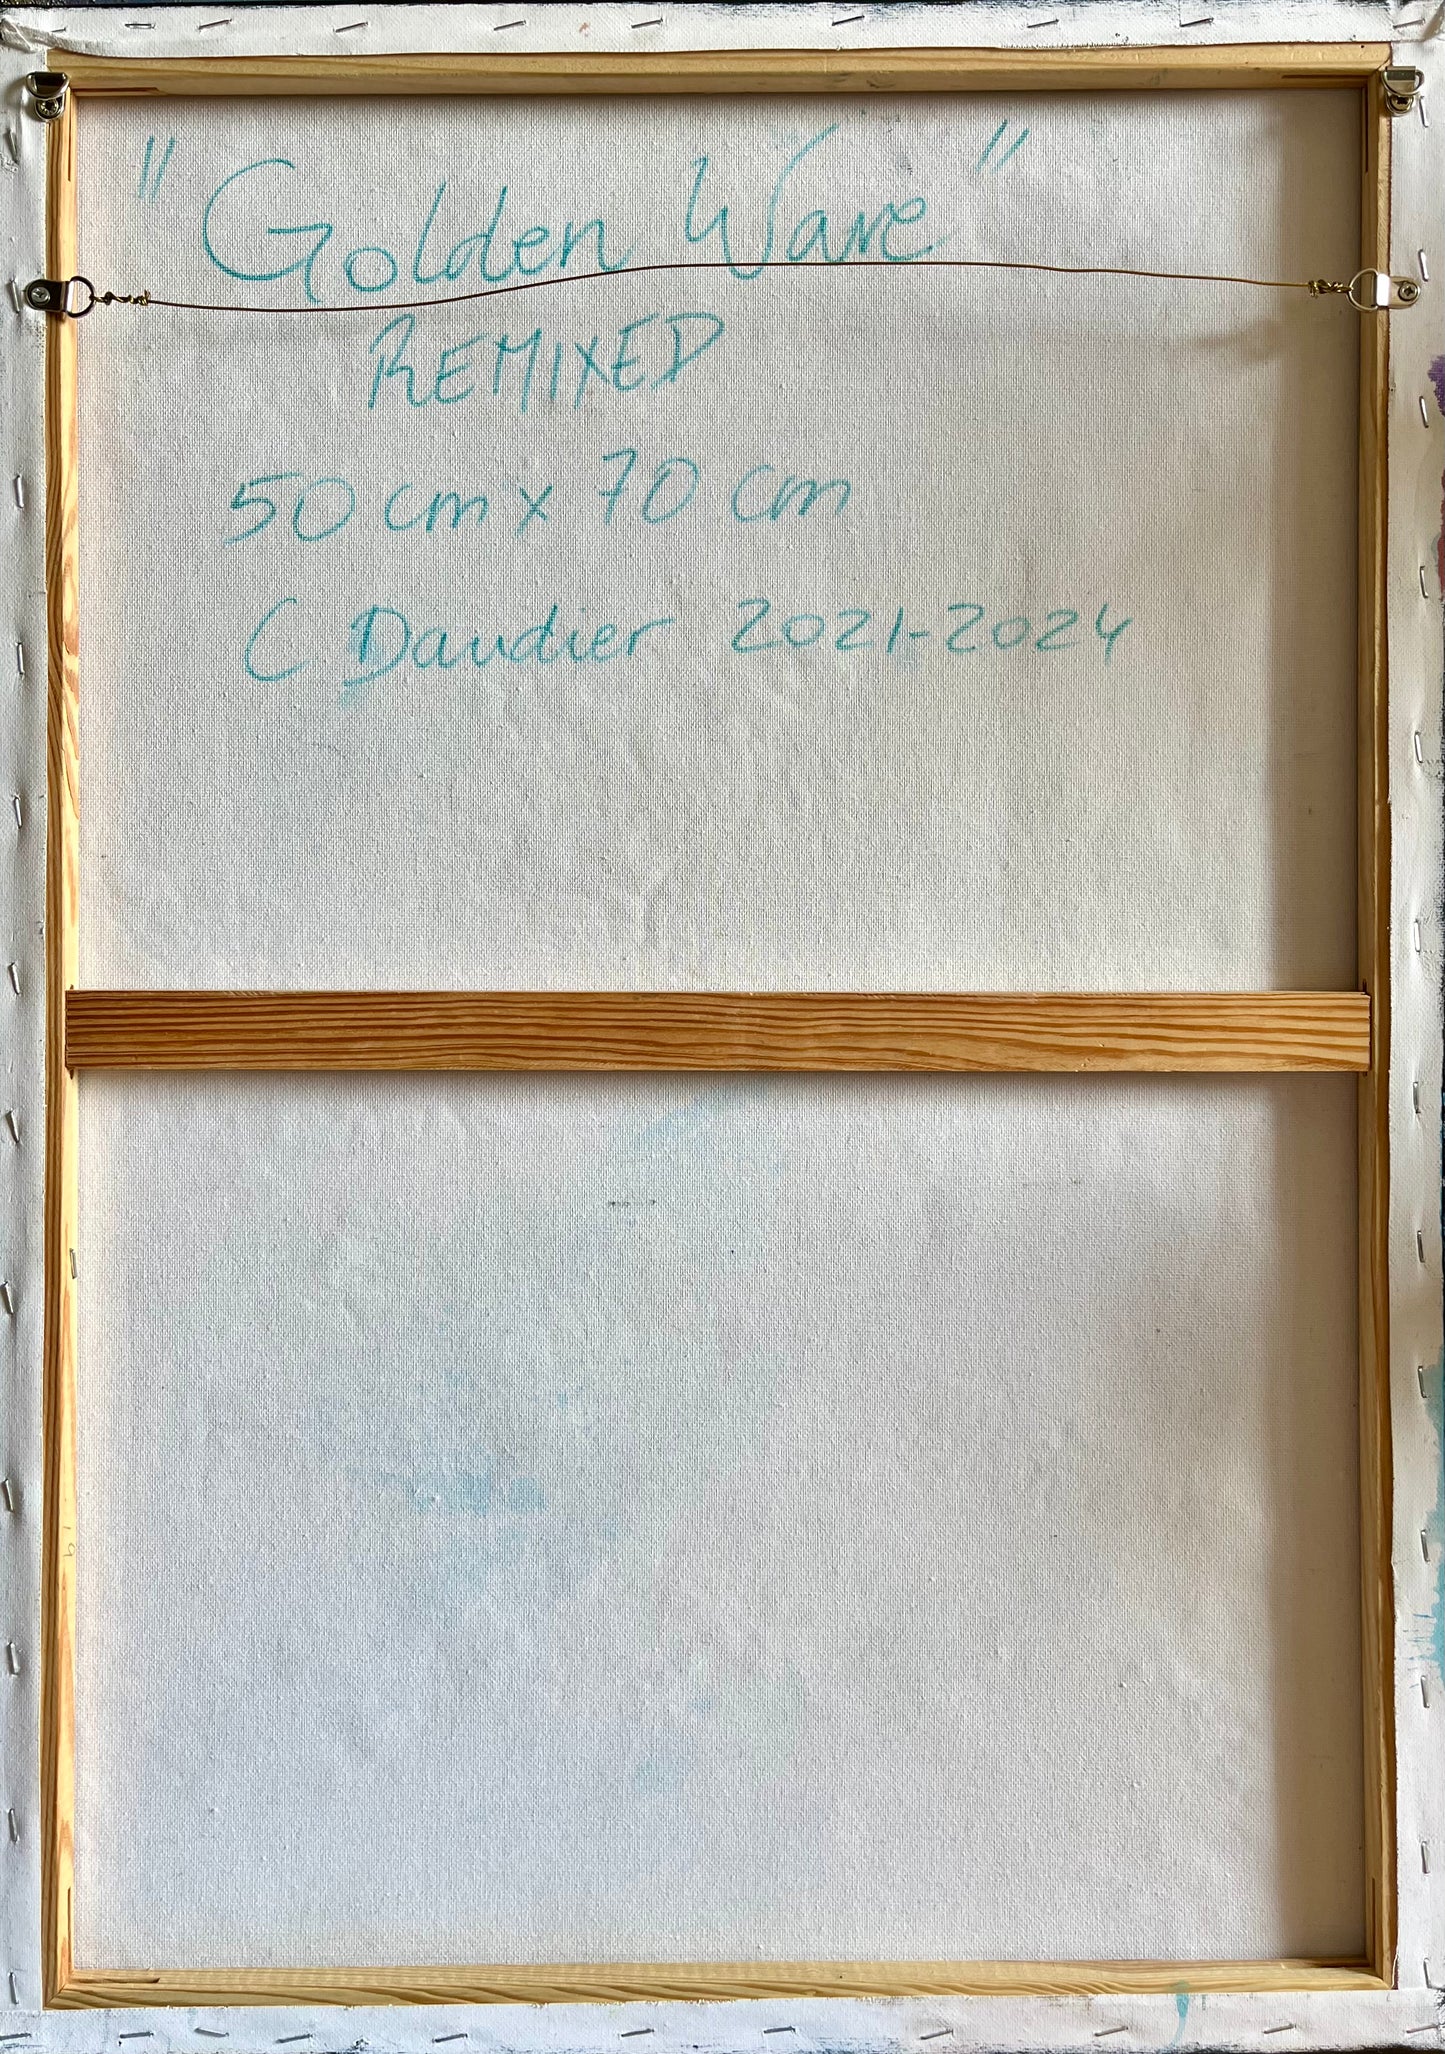 "Golden Wave"
REMIXED
50 cm x 70 cm
C Daudier 2021-2024